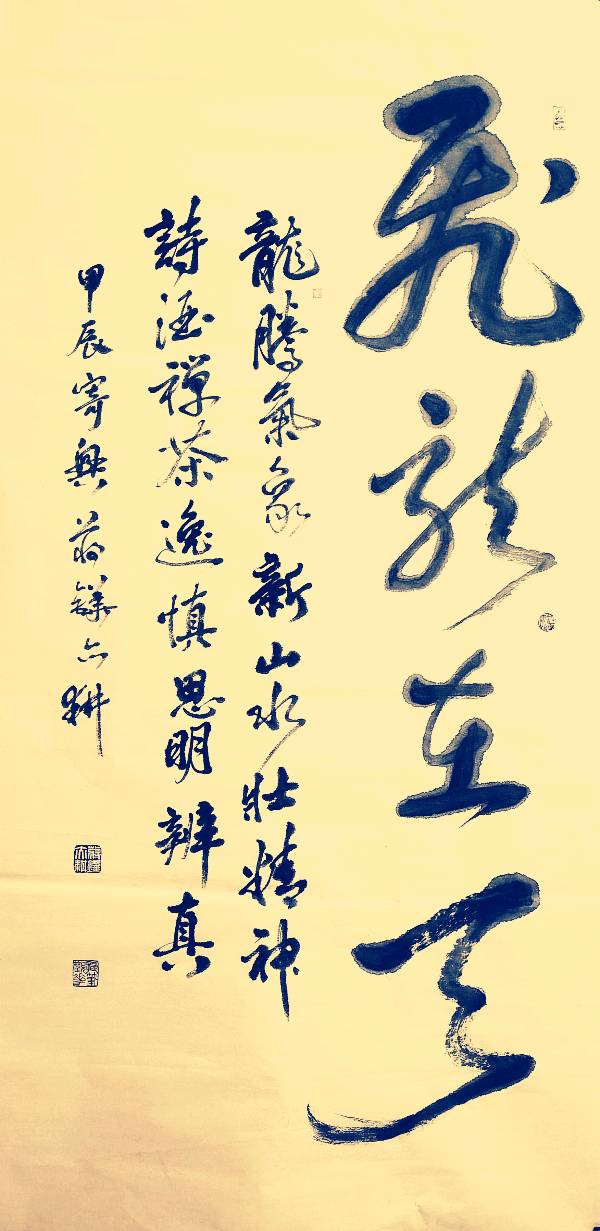 飛龍在天
龍騰氣象新山水壯精神
詩酒禪茶逸慎思明辨真
甲辰寄興蔣鐵六耕